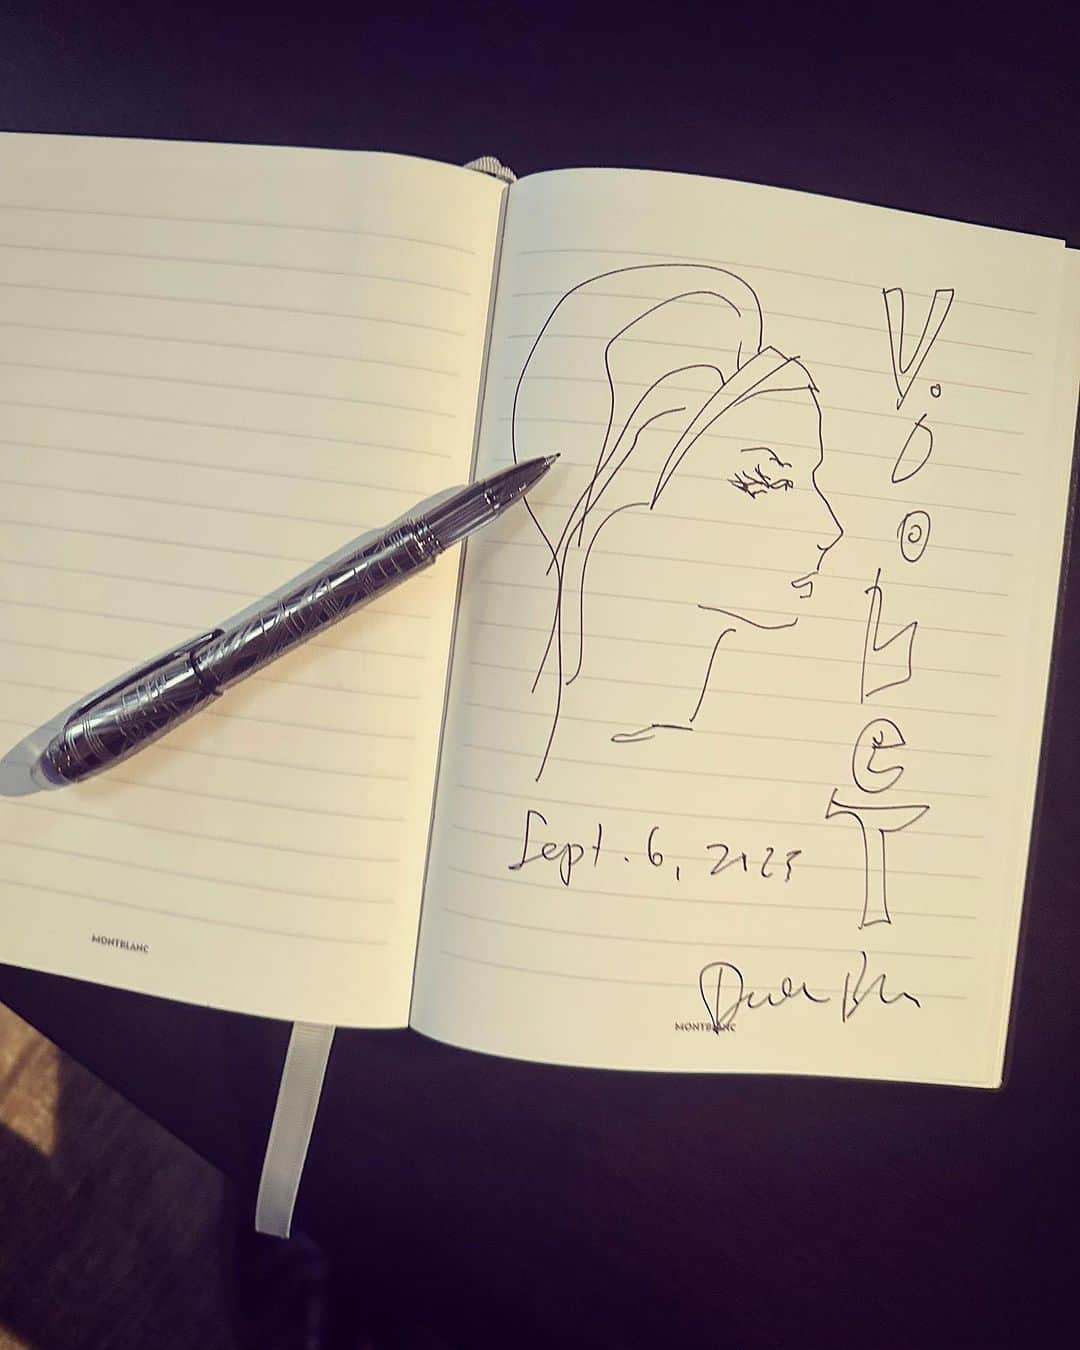 VioleT
Sept. 6, 2023
MONTBLANC
MONTBLANC